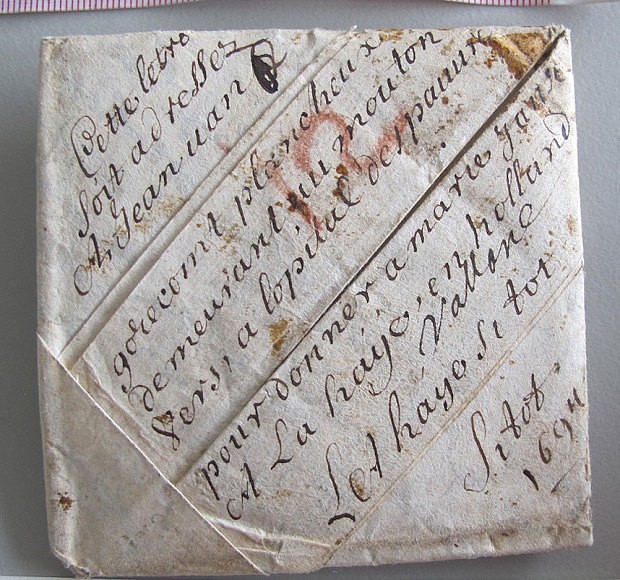 Cette letre
soit adresser
A Jean uan
gorecomt plancheux
demeurant au mouton
vers, a lopital des pauure
pour donner a marie
A La haÿe, en holland
Vallone
Let haÿe si tot
si tot.
1694
12